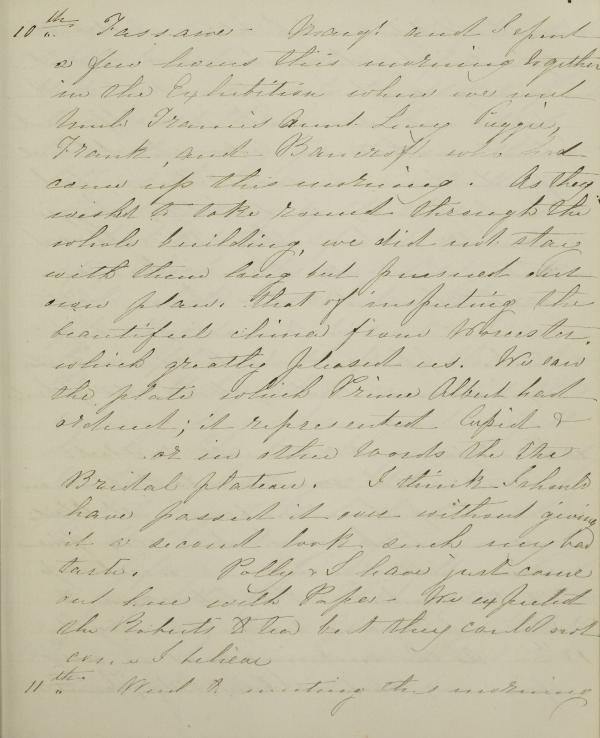 10th Fassawe - Marg't and I spent
a few hours this morning together
in the Exhibition where we met
Uncle Francis Aunt Lucy Puggie,
Frank, and Bancroft who had
come up this morning. As they
wisht to take round through the
whole building, we did not stay
with them long but pursued our
own plan. that of inspecting the
beautiful china from Worcester,
which greatly pleased us. We saw
the plate which Prince Albert had
ordered; it represented Cupid &
or in other words the the
Bridal plateau. I think I should
have passed it over without giving
it a second look such my bad
taste. Polly & I have just come
out here with Papa - We expected
the Roberts to tea but they could not
come I believe
11th Went to meeting this morning